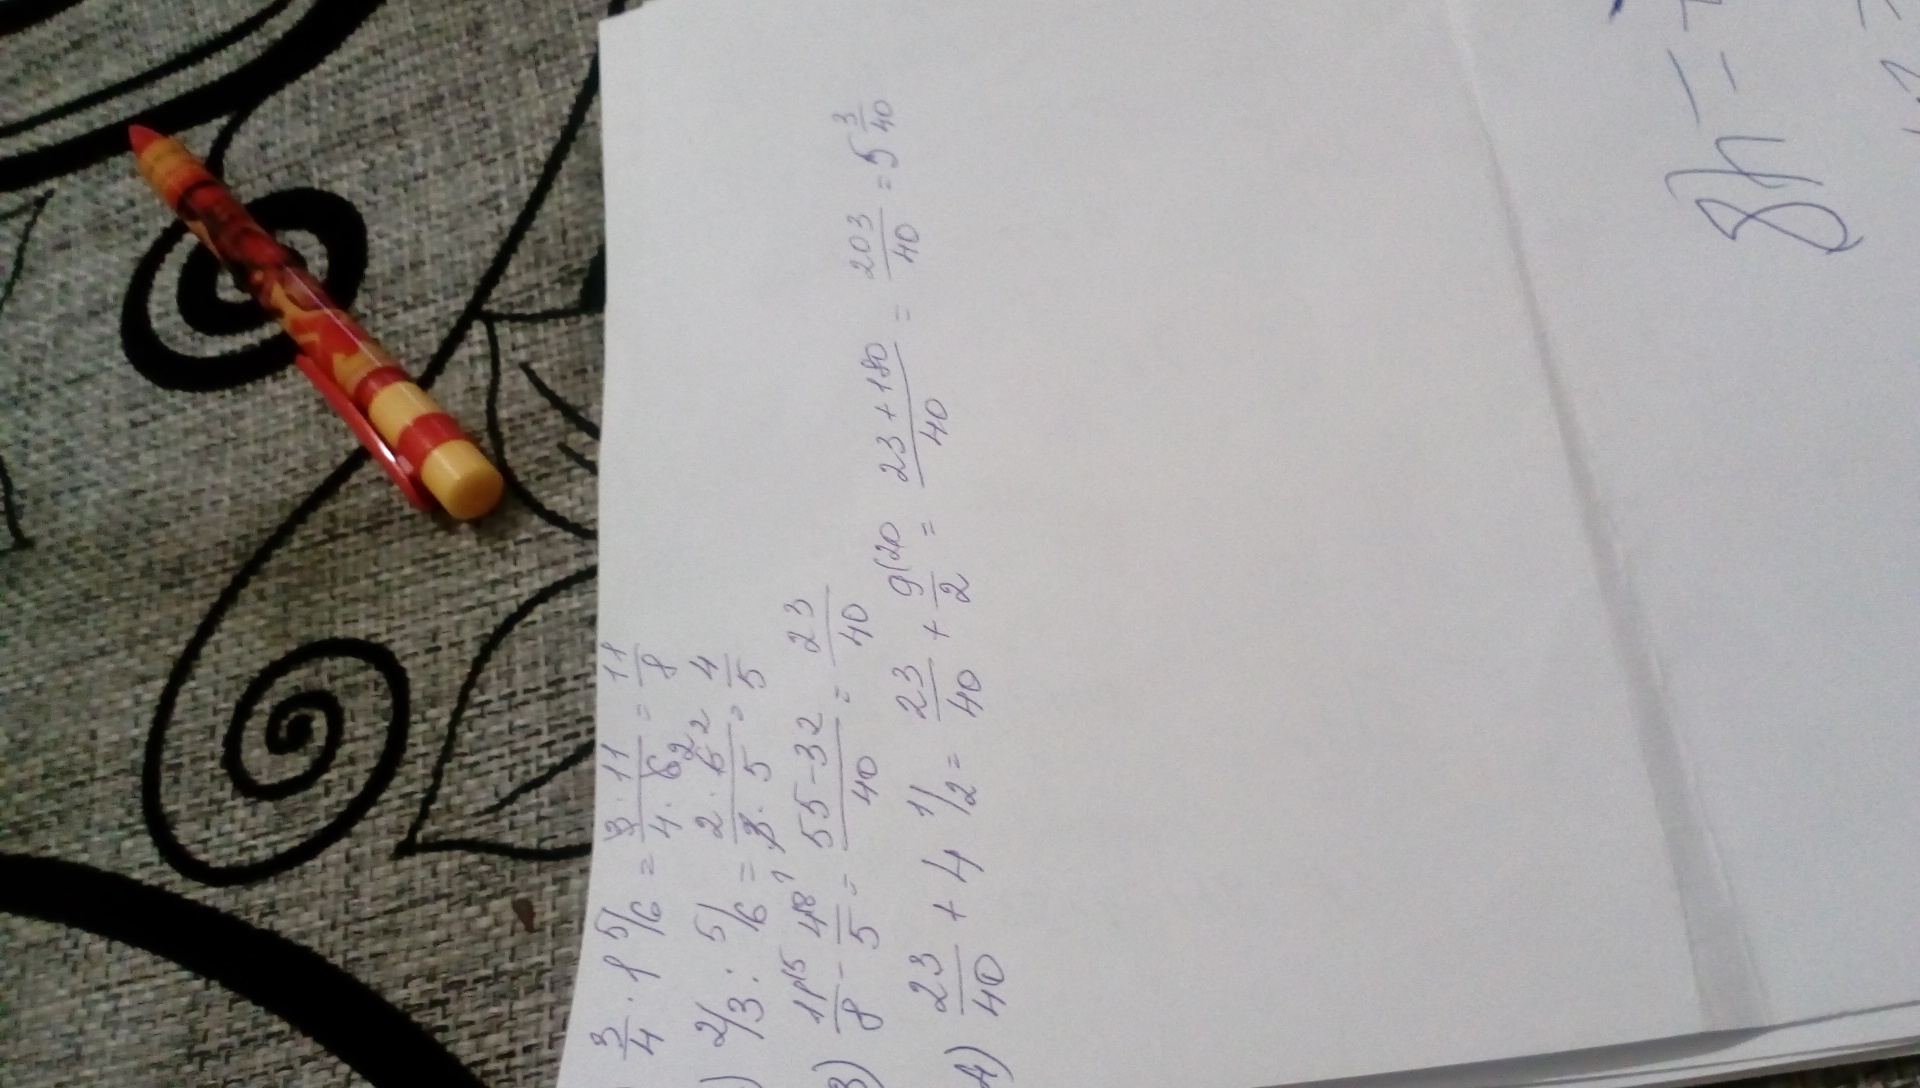 3/4 · 1 5/6 = 3 · 11 / 4 · 6 2 = 11/8
) 2/3 : 5/6 = 2 · 6 2 / 3 1 · 5 = 4/5
3) 11(5 / 8 - 4(8 / 5 = 55-32 / 40 = 23/40
4) 23/40 + 4 1/2 = 23/40 + 9(20 / 2 = 23+180 / 40 = 203/40 = 5 3/40